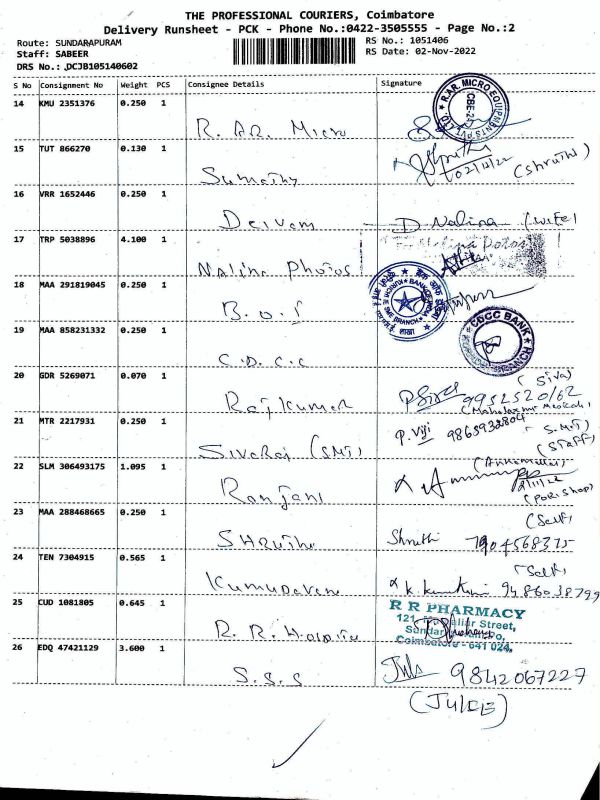 THE PROFESSIONAL COURIERS, Coimbatore
Delivery Runsheet - PCK - Phone No.:0422-3505555 - Page No.:2
Route: SUNDARAPURAM RS No.: 1051406
Staff: SABEER RS Date: 02-Nov-2022
DRS No.: DCJB105140602
S No Consignment No Weight PCS Consignee Details Signature
14 KMU 2351376 0.250 1
R. AR. Micro
R.AR. MICRO EQUIPMENTS PVT LTD. CBE-21
15 TUT 866270 0.130 1
Sumathy Shruthi 02/11/22 (Shruthi)
16 VRR 1652446 0.250 1
Deivam D. Nalina (wife)
17 TRP 5038896 4.100 1
Nalina Photos
18 MAA 291819045 0.250 1
B.O.I BANK OF INDIA SME BRANCH
19 MAA 858231332 0.250 1
C.D.C.C CDCC BANK BRANCH
20 GDR 5269071 0.070 1
Rajkumar P Siva 9952520162 (Siva)
21 MTR 2217931 0.250 1
Sivaraj (SMT) P. Viji 9865932804 (S.M.T) (Staff)
22 SLM 306493175 1.095 1
Ranjani
23 MAA 288468665 0.250 1
Shruthi Shruthi 7904568375 (Self)
24 TEN 7304915 0.565 1
9486038799 (Self)
25 CUD 1081805 0.645 1
R.R. R R PHARMACY
Street,
Coimbatore - 641 024.
26 EDQ 47421129 3.600 1
S.S.S 9842067227